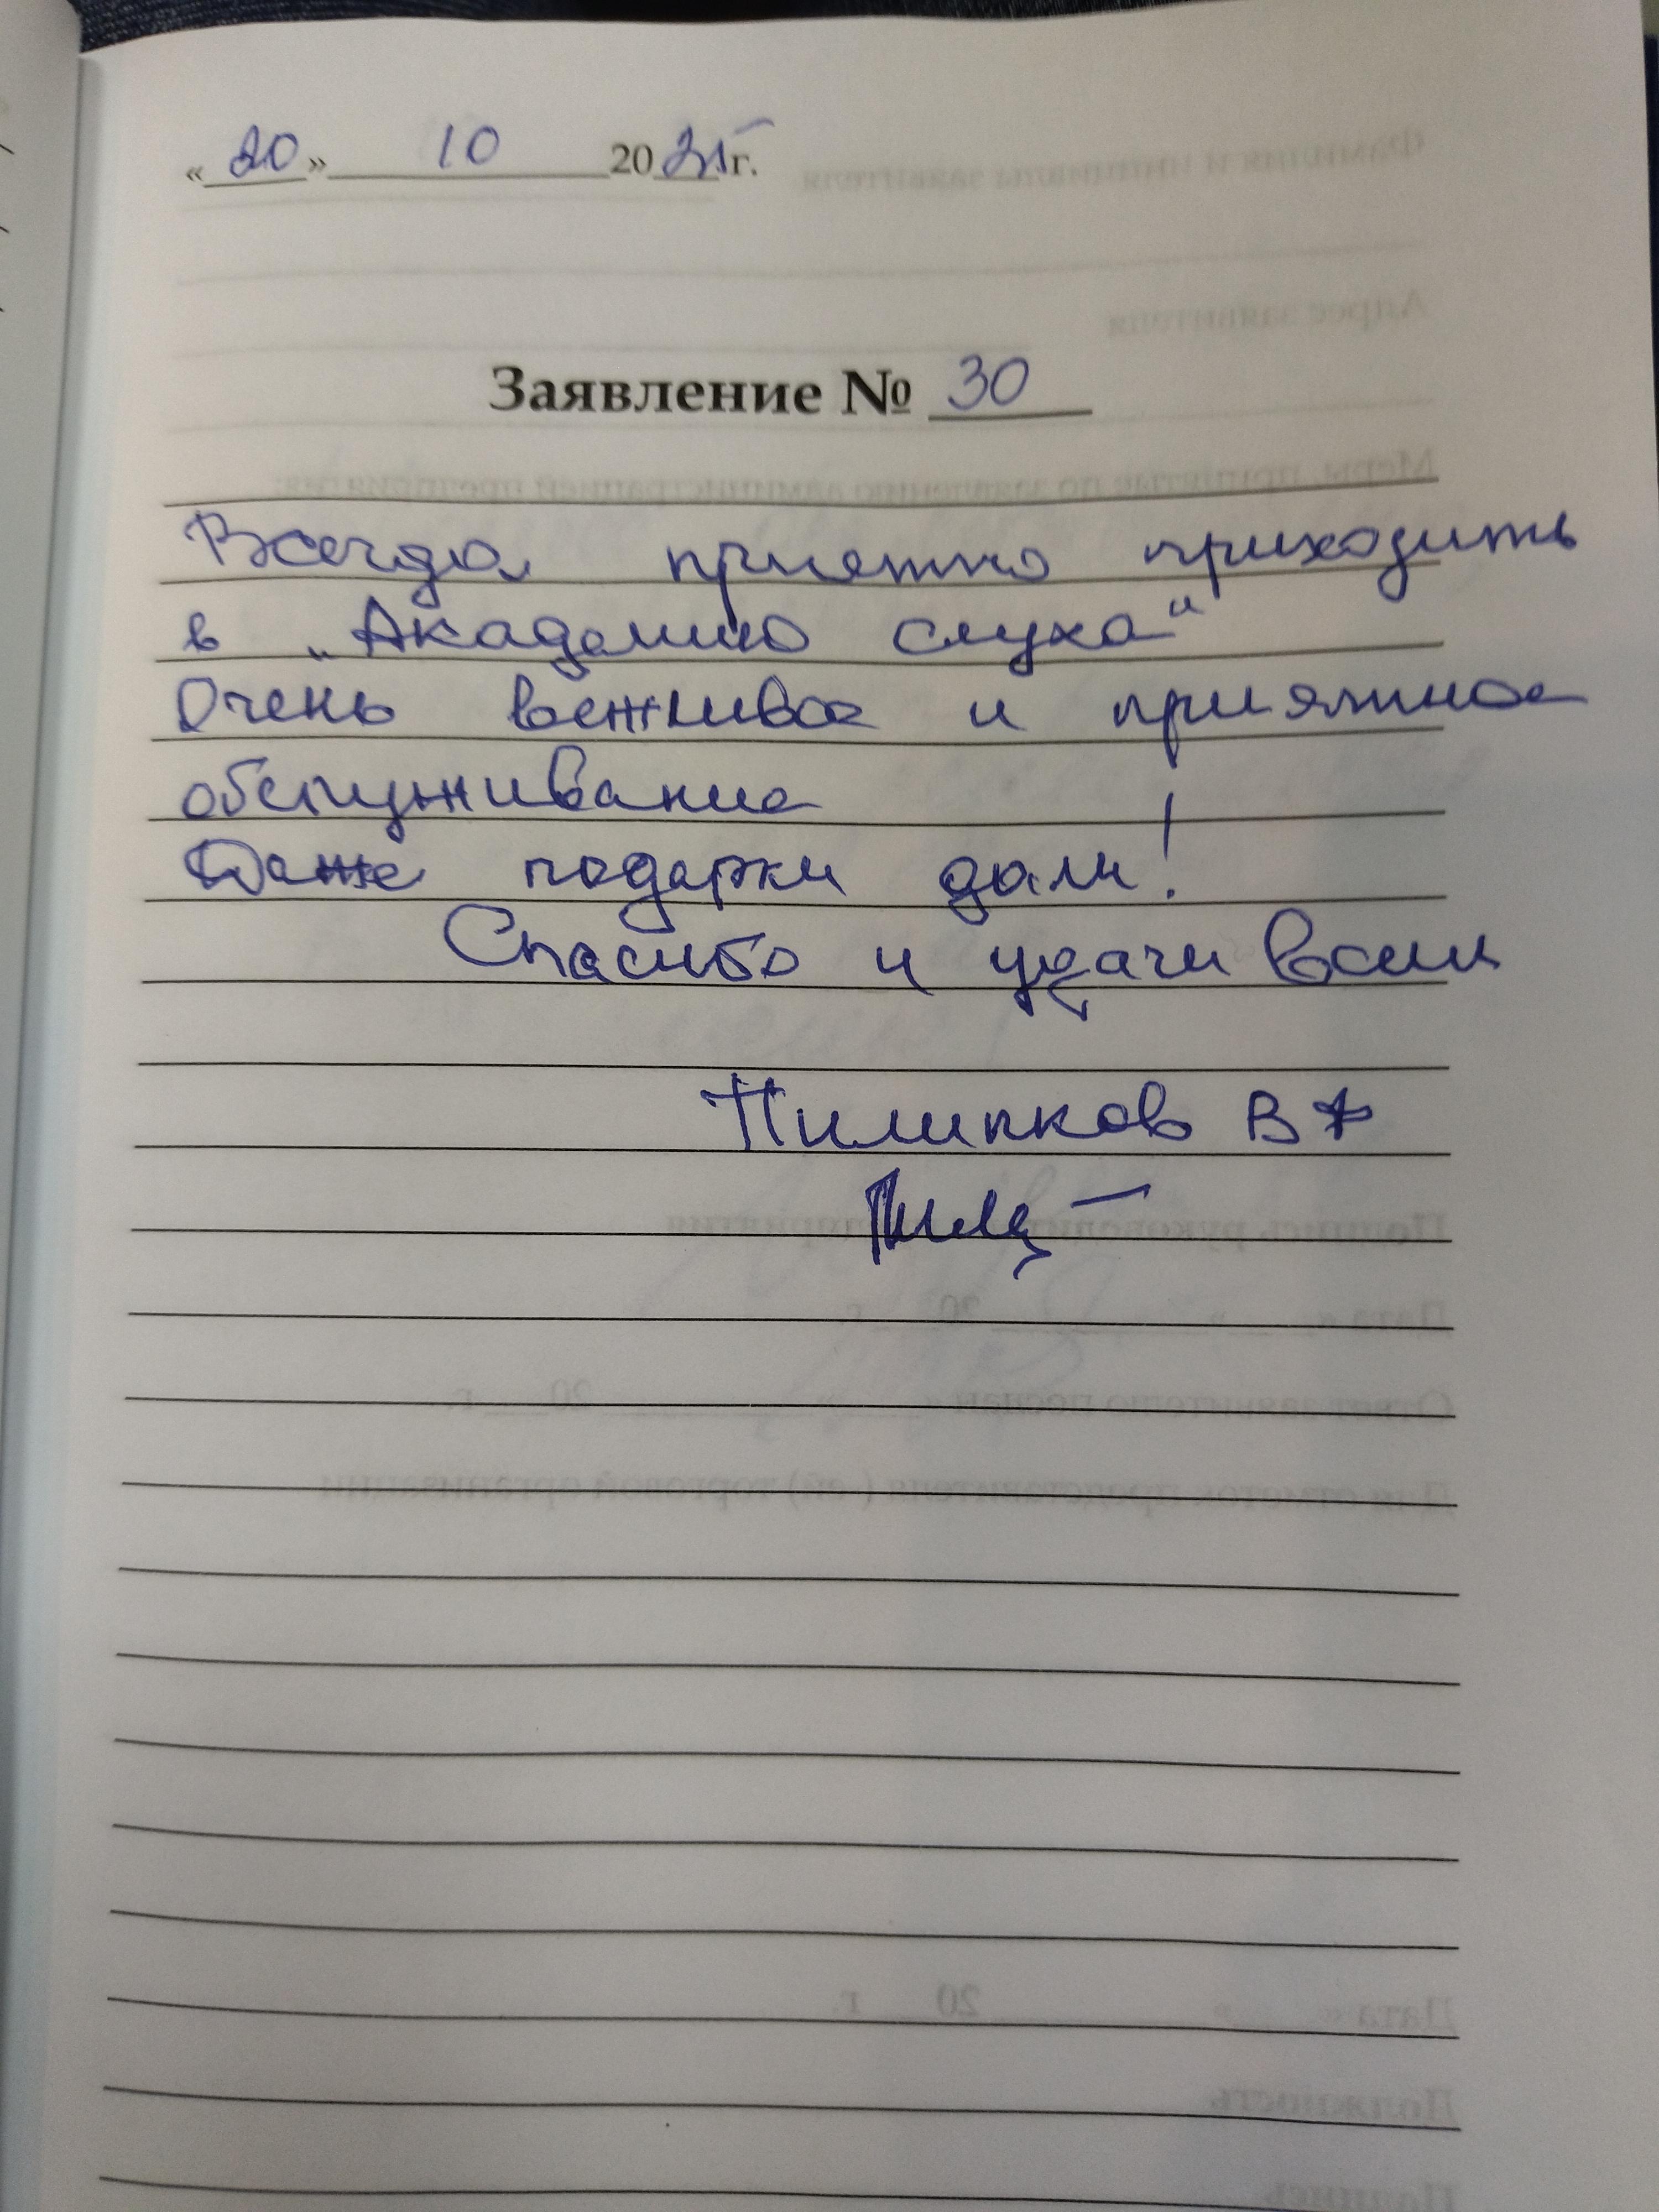 «20» 10 2025г.
Заявление № 30
Всегда приятно приходить
в „Академию слуха“
Очень вежливое и приятное
обслуживание
Даже подарки дали!
Спасибо и удачи всем
Пилипков В А